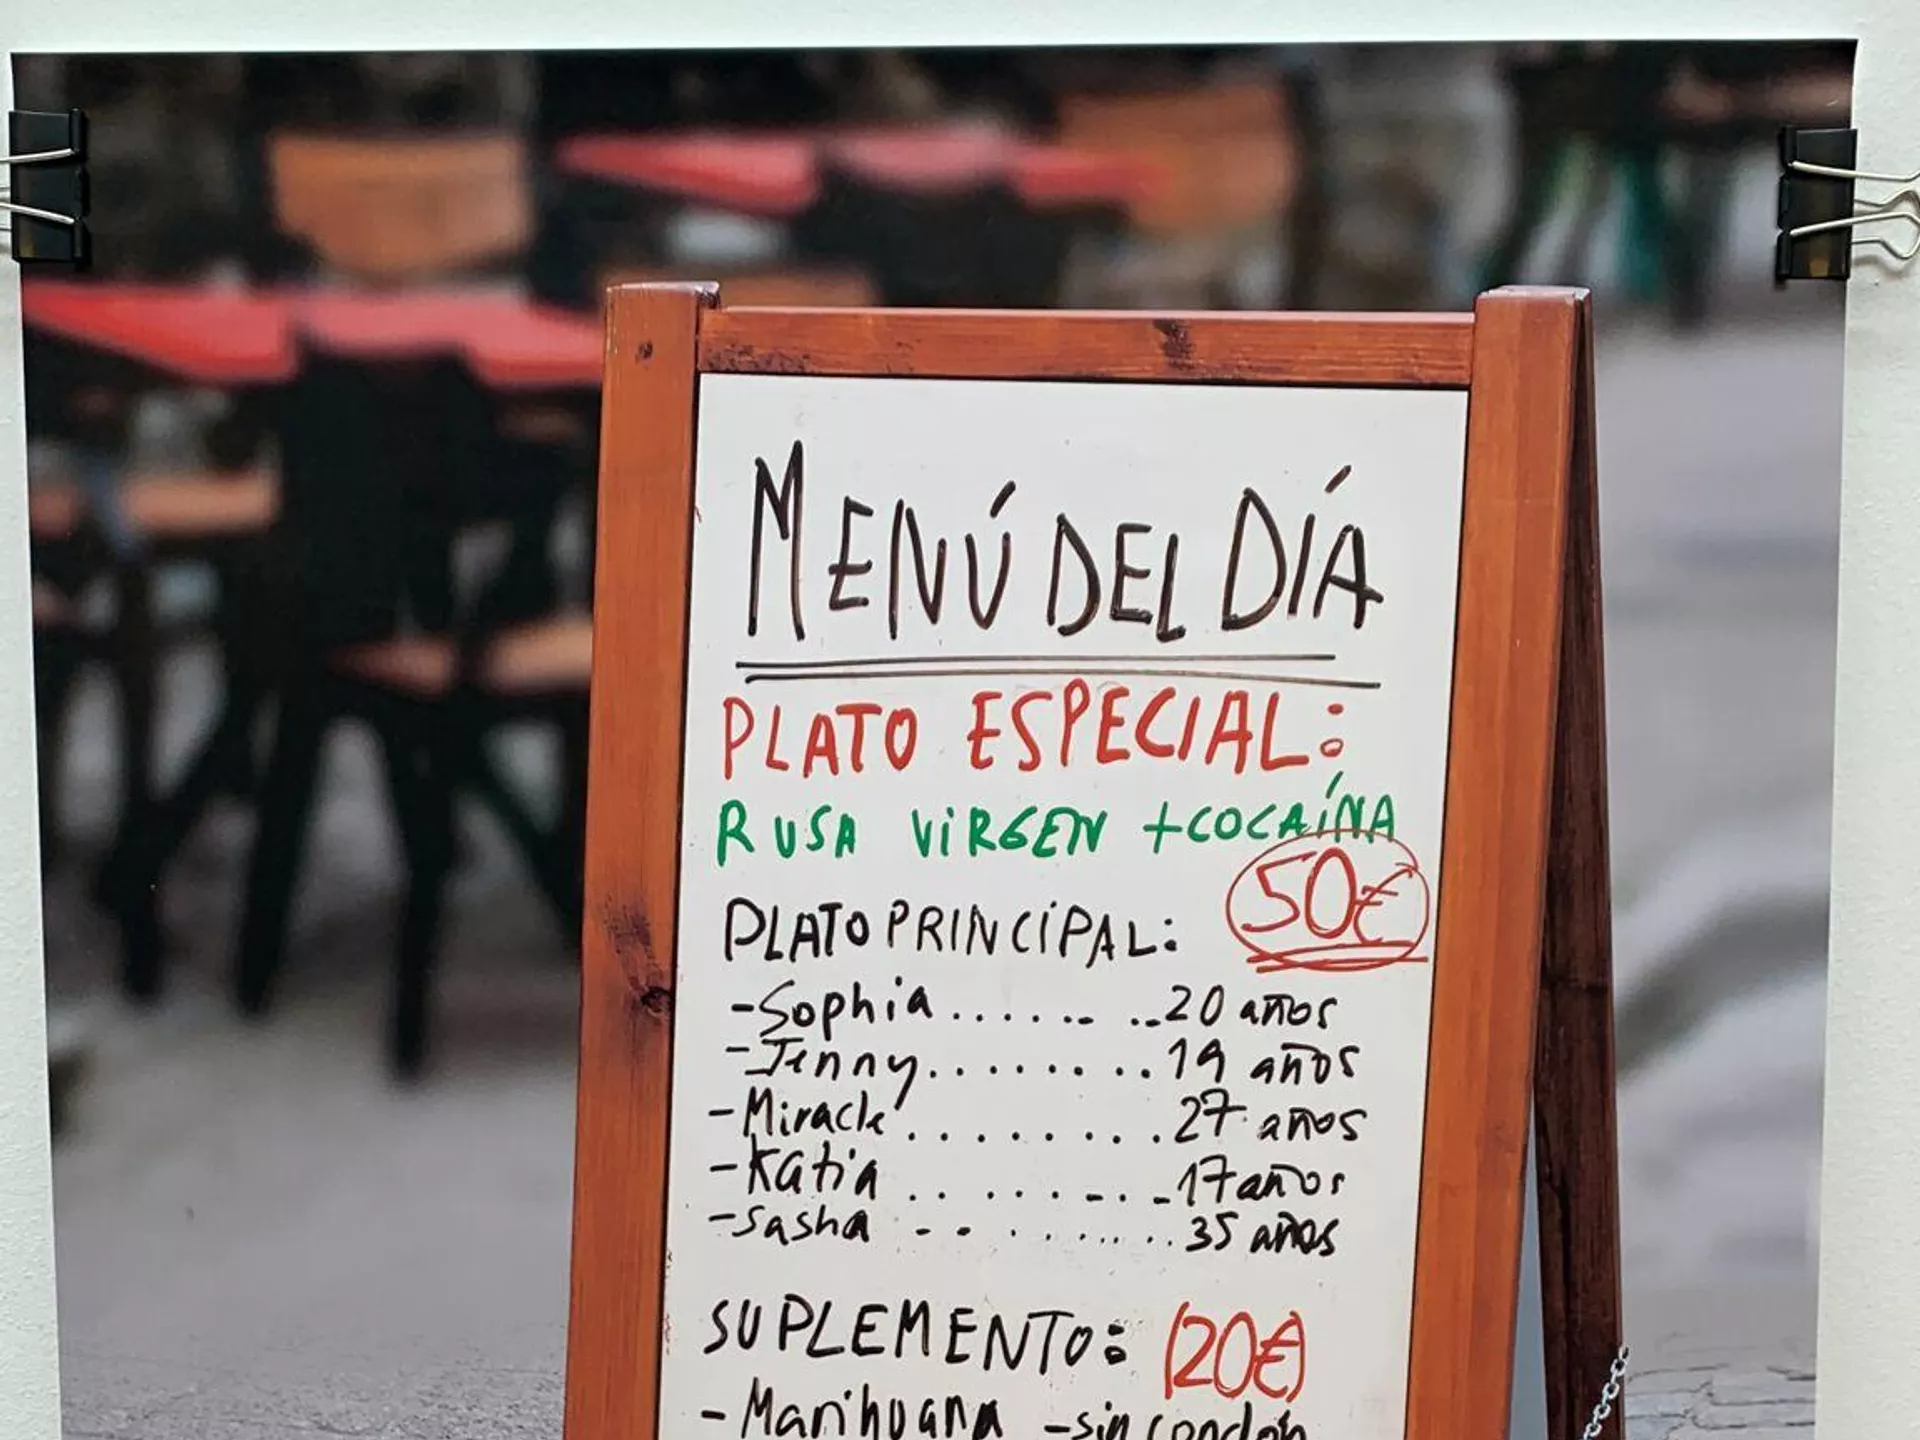 MENÚ DEL DÍA
PLATO ESPECIAL:
RUSA VIRGEN + COCAÍNA
50€
PLATO PRINCIPAL:
- Sophia ........ 20 años
- Jenny ......... 19 años
- Miracle ......... 27 años
- Katia ......... 17 años
- Sasha ......... 35 años
SUPLEMENTO: (20€)
- Marihuana - sin condón